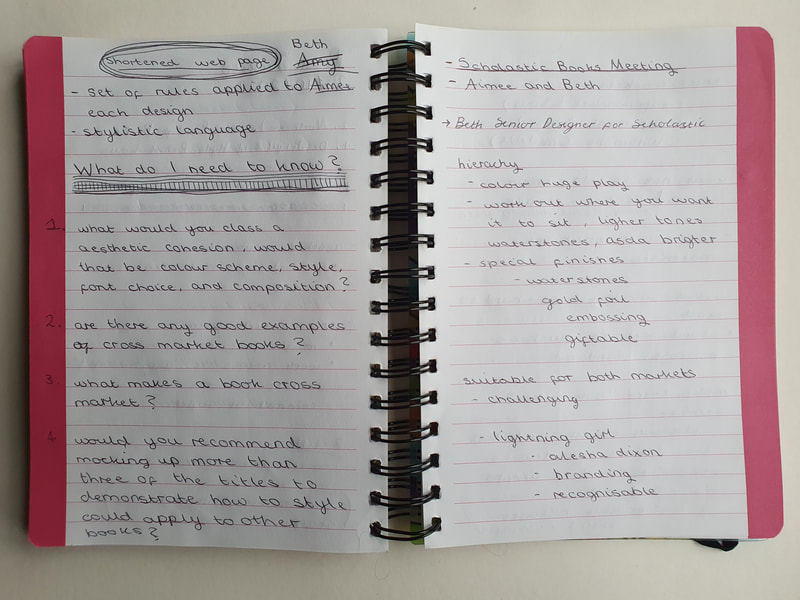 Shortened web page
Beth
Amy
- set of rules applied to Aimee
each design
- stylistic language
What do I need to know?
1. what would you class a
aesthetic cohesion, would
that be colour scheme, style,
font choice, and composition?
2. are there any good examples
of cross market books?
3. what makes a book cross
market?
4. would you recommend
mocking up more than
three of the titles to
demonstrate how to style
could apply to other
books?
- Scholastic Books Meeting
- Aimee and Beth
→ Beth Senior Designer for Scholastic
hierachy
- colour huge play
- work out where you want
it to sit, ligher tones
waterstones, asda brigter
- special finishes
- waterstones
gold foil
embossing
giftable
suitable for both markets
- challenging
- lightning girl
- alesha dixon
- branding
- recognisable